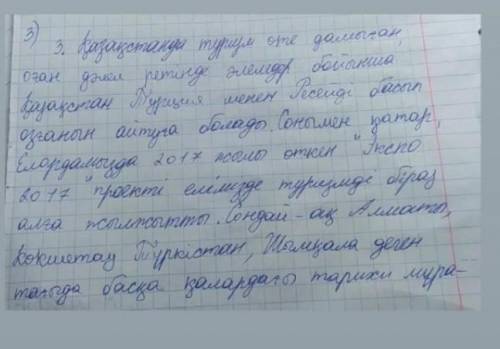 3)
3. Қазақстанда туризм өте дамыған,
оған дәлел ретінде әлемдр бойынша
Қазақстан Түрция менен Ресейді басып
озғанын айтуға болады. Сонымен қатар,
Елордамызда 2017 жылы өткен "Экспо
2017" проекті елімізде туризмді біраз
алға жылжытты. Сондай-ақ Алматы,
Көкшетау Түркістан, Шымқала деген
тағыда басқа қалардағы тарихи мұра-